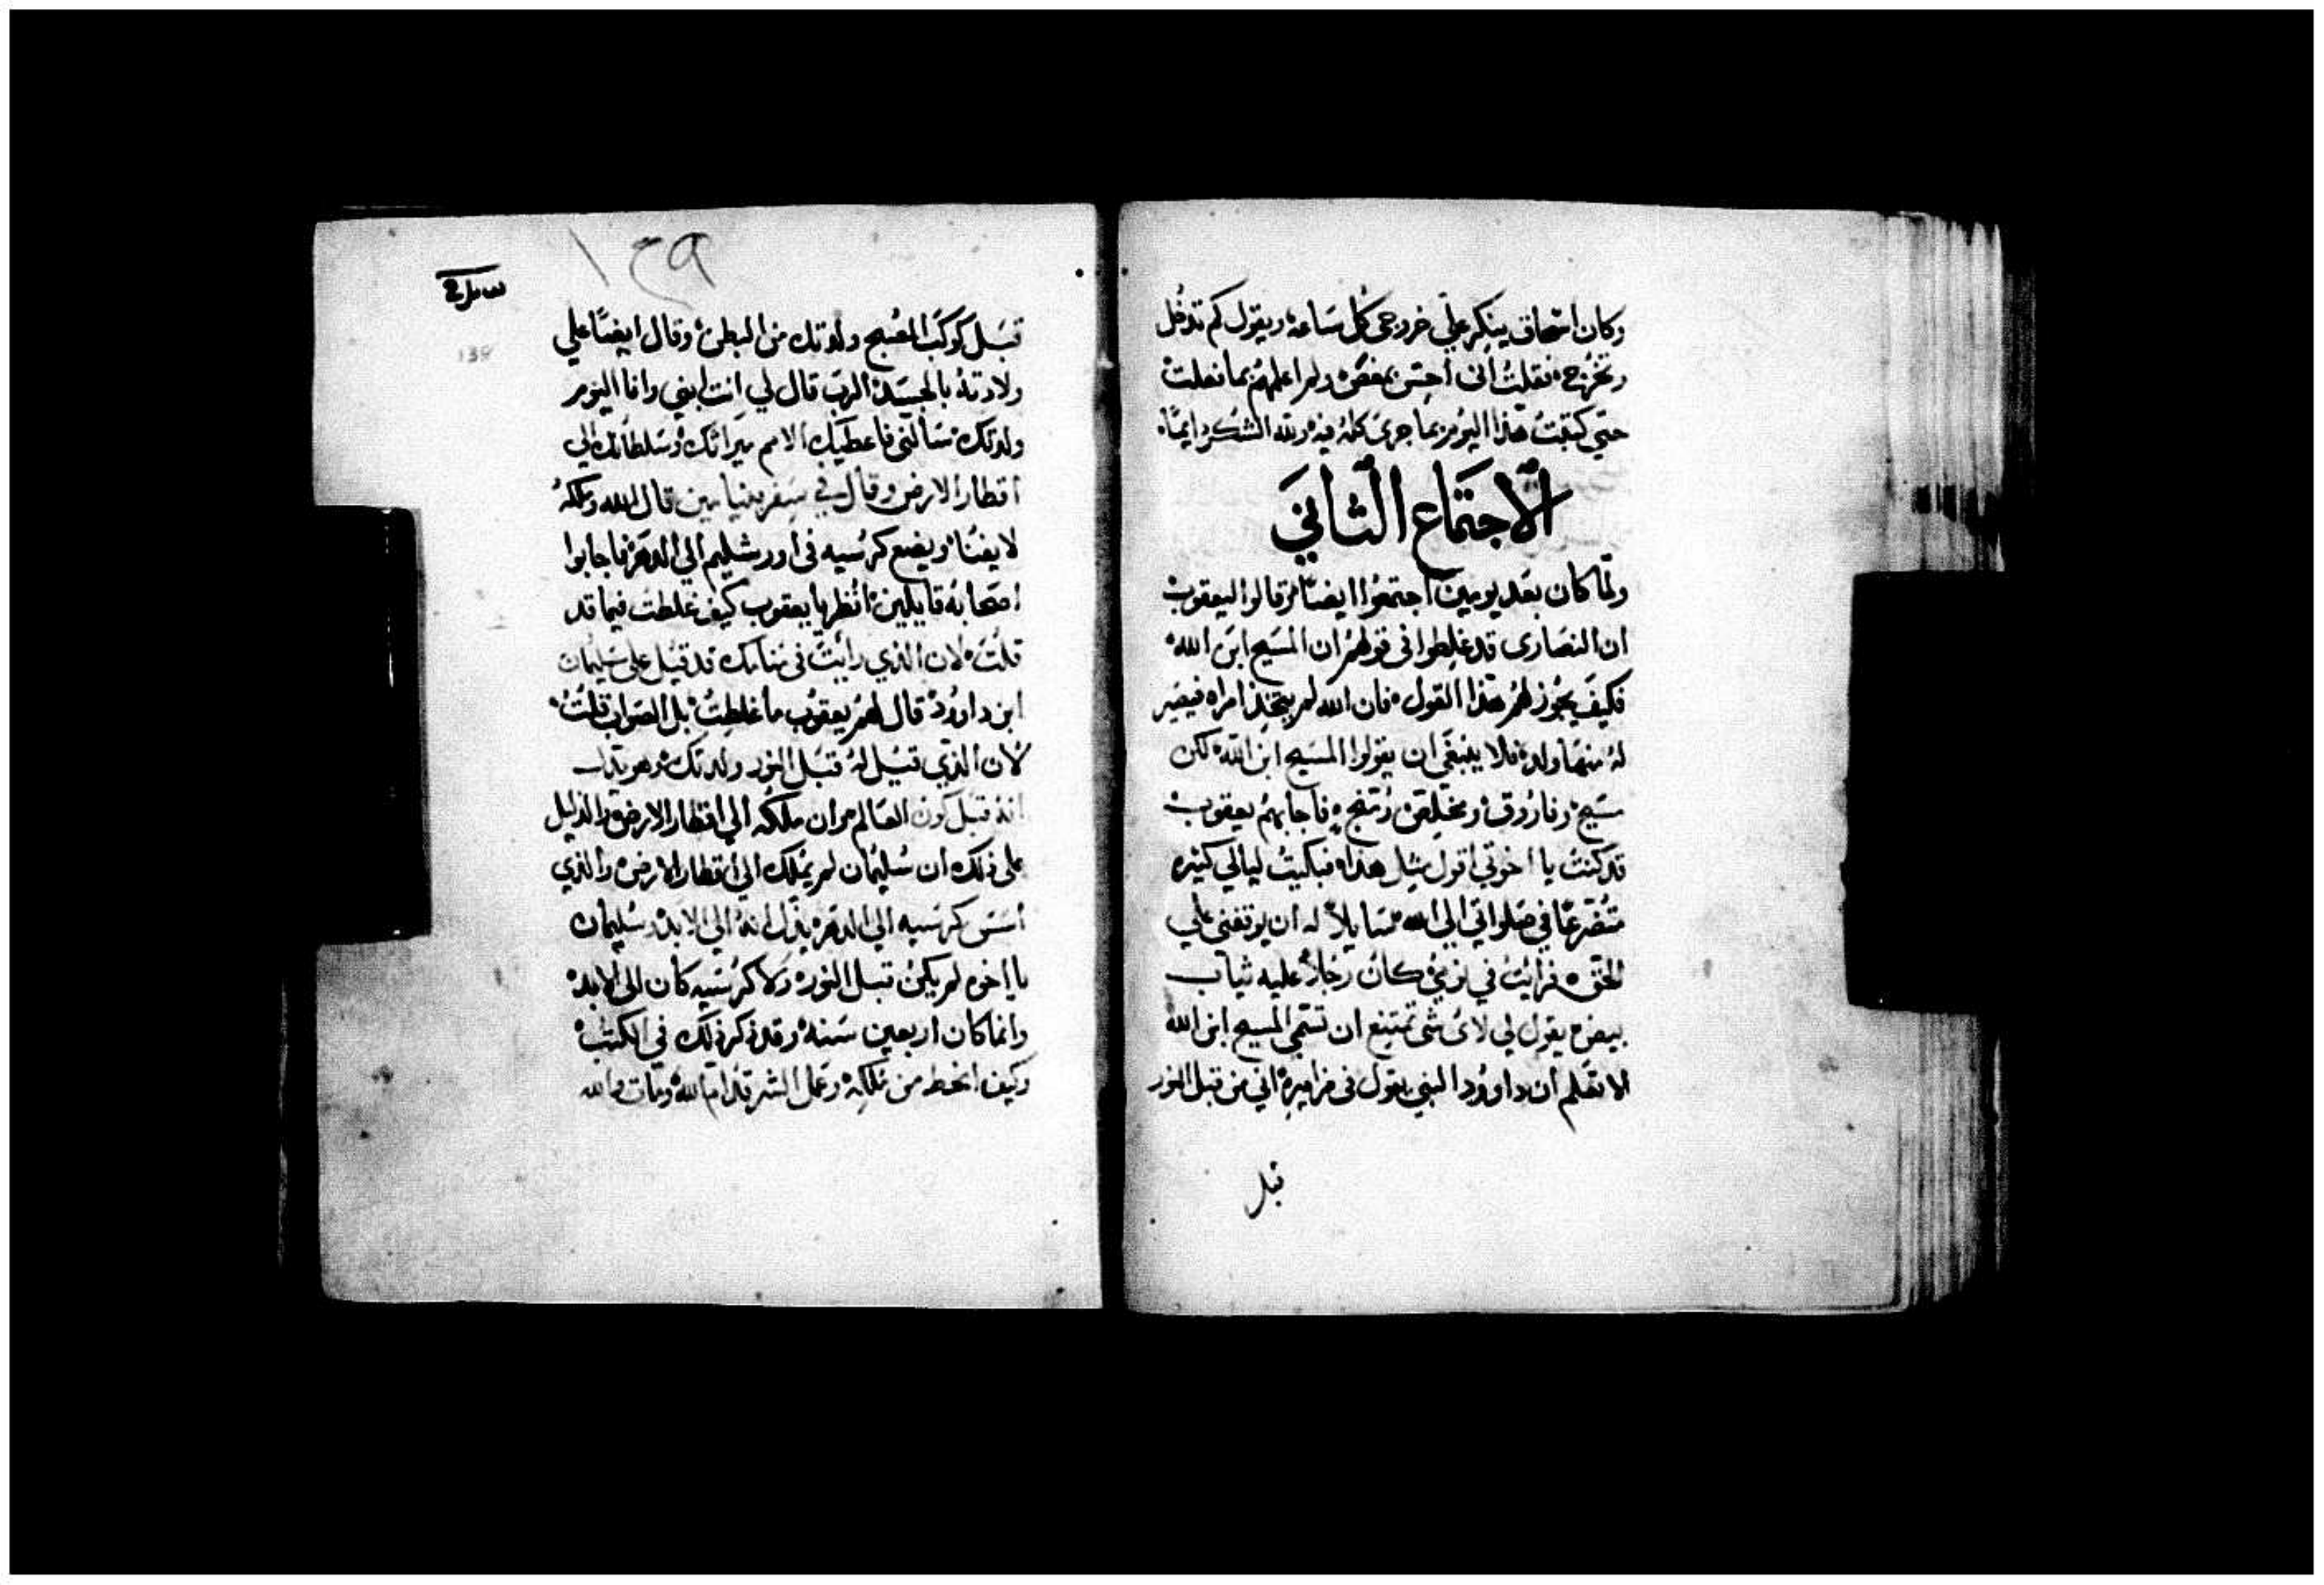 وكان اسحاق ينكر علي خروجي كل ساعه ويقول كم تدخل
وتخرج فقلت اني احس بمغص ولم اعلمهم بما فعلت
حتي كتبت هذا اليوم بما جري كله فيه ولله الشكر دايمًا
الاجتماع الثاني
ولما كان بعد يومين اجتمعوا ايضًا وقالوا ليعقوب
ان النصارى قد غلطوا في قولهم ان المسيح ابن الله
فكيف يجوز لهم هذا القول فان الله لم يتخذ امراه فيصير
له منها ولد فلا ينبغي ان يقولوا المسيح ابن الله لكن
مسيح وفاروق ومخلص ومنج فاجابهم يعقوب
قد كنت يا اخوتي اقول مثل هذا فبكيت ليالي كثيره
متضرعًا في صلواتي الي الله مسايلاً له ان يوقفني علي
الحق فرايت في نومي كان رجلاً عليه ثياب
بيض يقول لي لاي شي تمتنع ان تسمي المسيح ابن الله
الا تعلم ان داوود النبي يقول في مزاميره اني من قبل النور
قبل
١٢٩
139
قبل كوكب الصبح ولدتك من البطن وقال ايضًا علي
ولادته بالجسد الرب قال لي انت ابني وانا اليوم
ولدتك سالني فاعطيك الامم ميراثك وسلطانك الي
اقطار الارض وقال في سفر بنيامين قال الله وملكه
لا يفنا ويضع كرسيه في اورشليم الي الدهر فاجابوا
اصحابه قايلين انظر يا يعقوب كيف غلطت فيما قد
قلت لان الذي رايت في منامك قد قيل علي سليمان
ابن داوود قال لهم يعقوب ما غلطت بل الصواب قلت
لان الذي قيل له قبل النور ولدتك وهو
انه قبل كون العالم وان ملكه الي اقطار الارض والدليل
علي ذلك ان سليمان لم يملك الي اقطار الارض والذي
اسس كرسيه الي الدهر يدل انه الي الابد وسليمان
يا اخوه لم يكن قبل النور ولا كرسيه كان الي الابد
وانما كان اربعين سنه وقد ذكر ذلك في الكتب
وكيف انحط من ملكه وعمل الشر قدام الله ومات والله